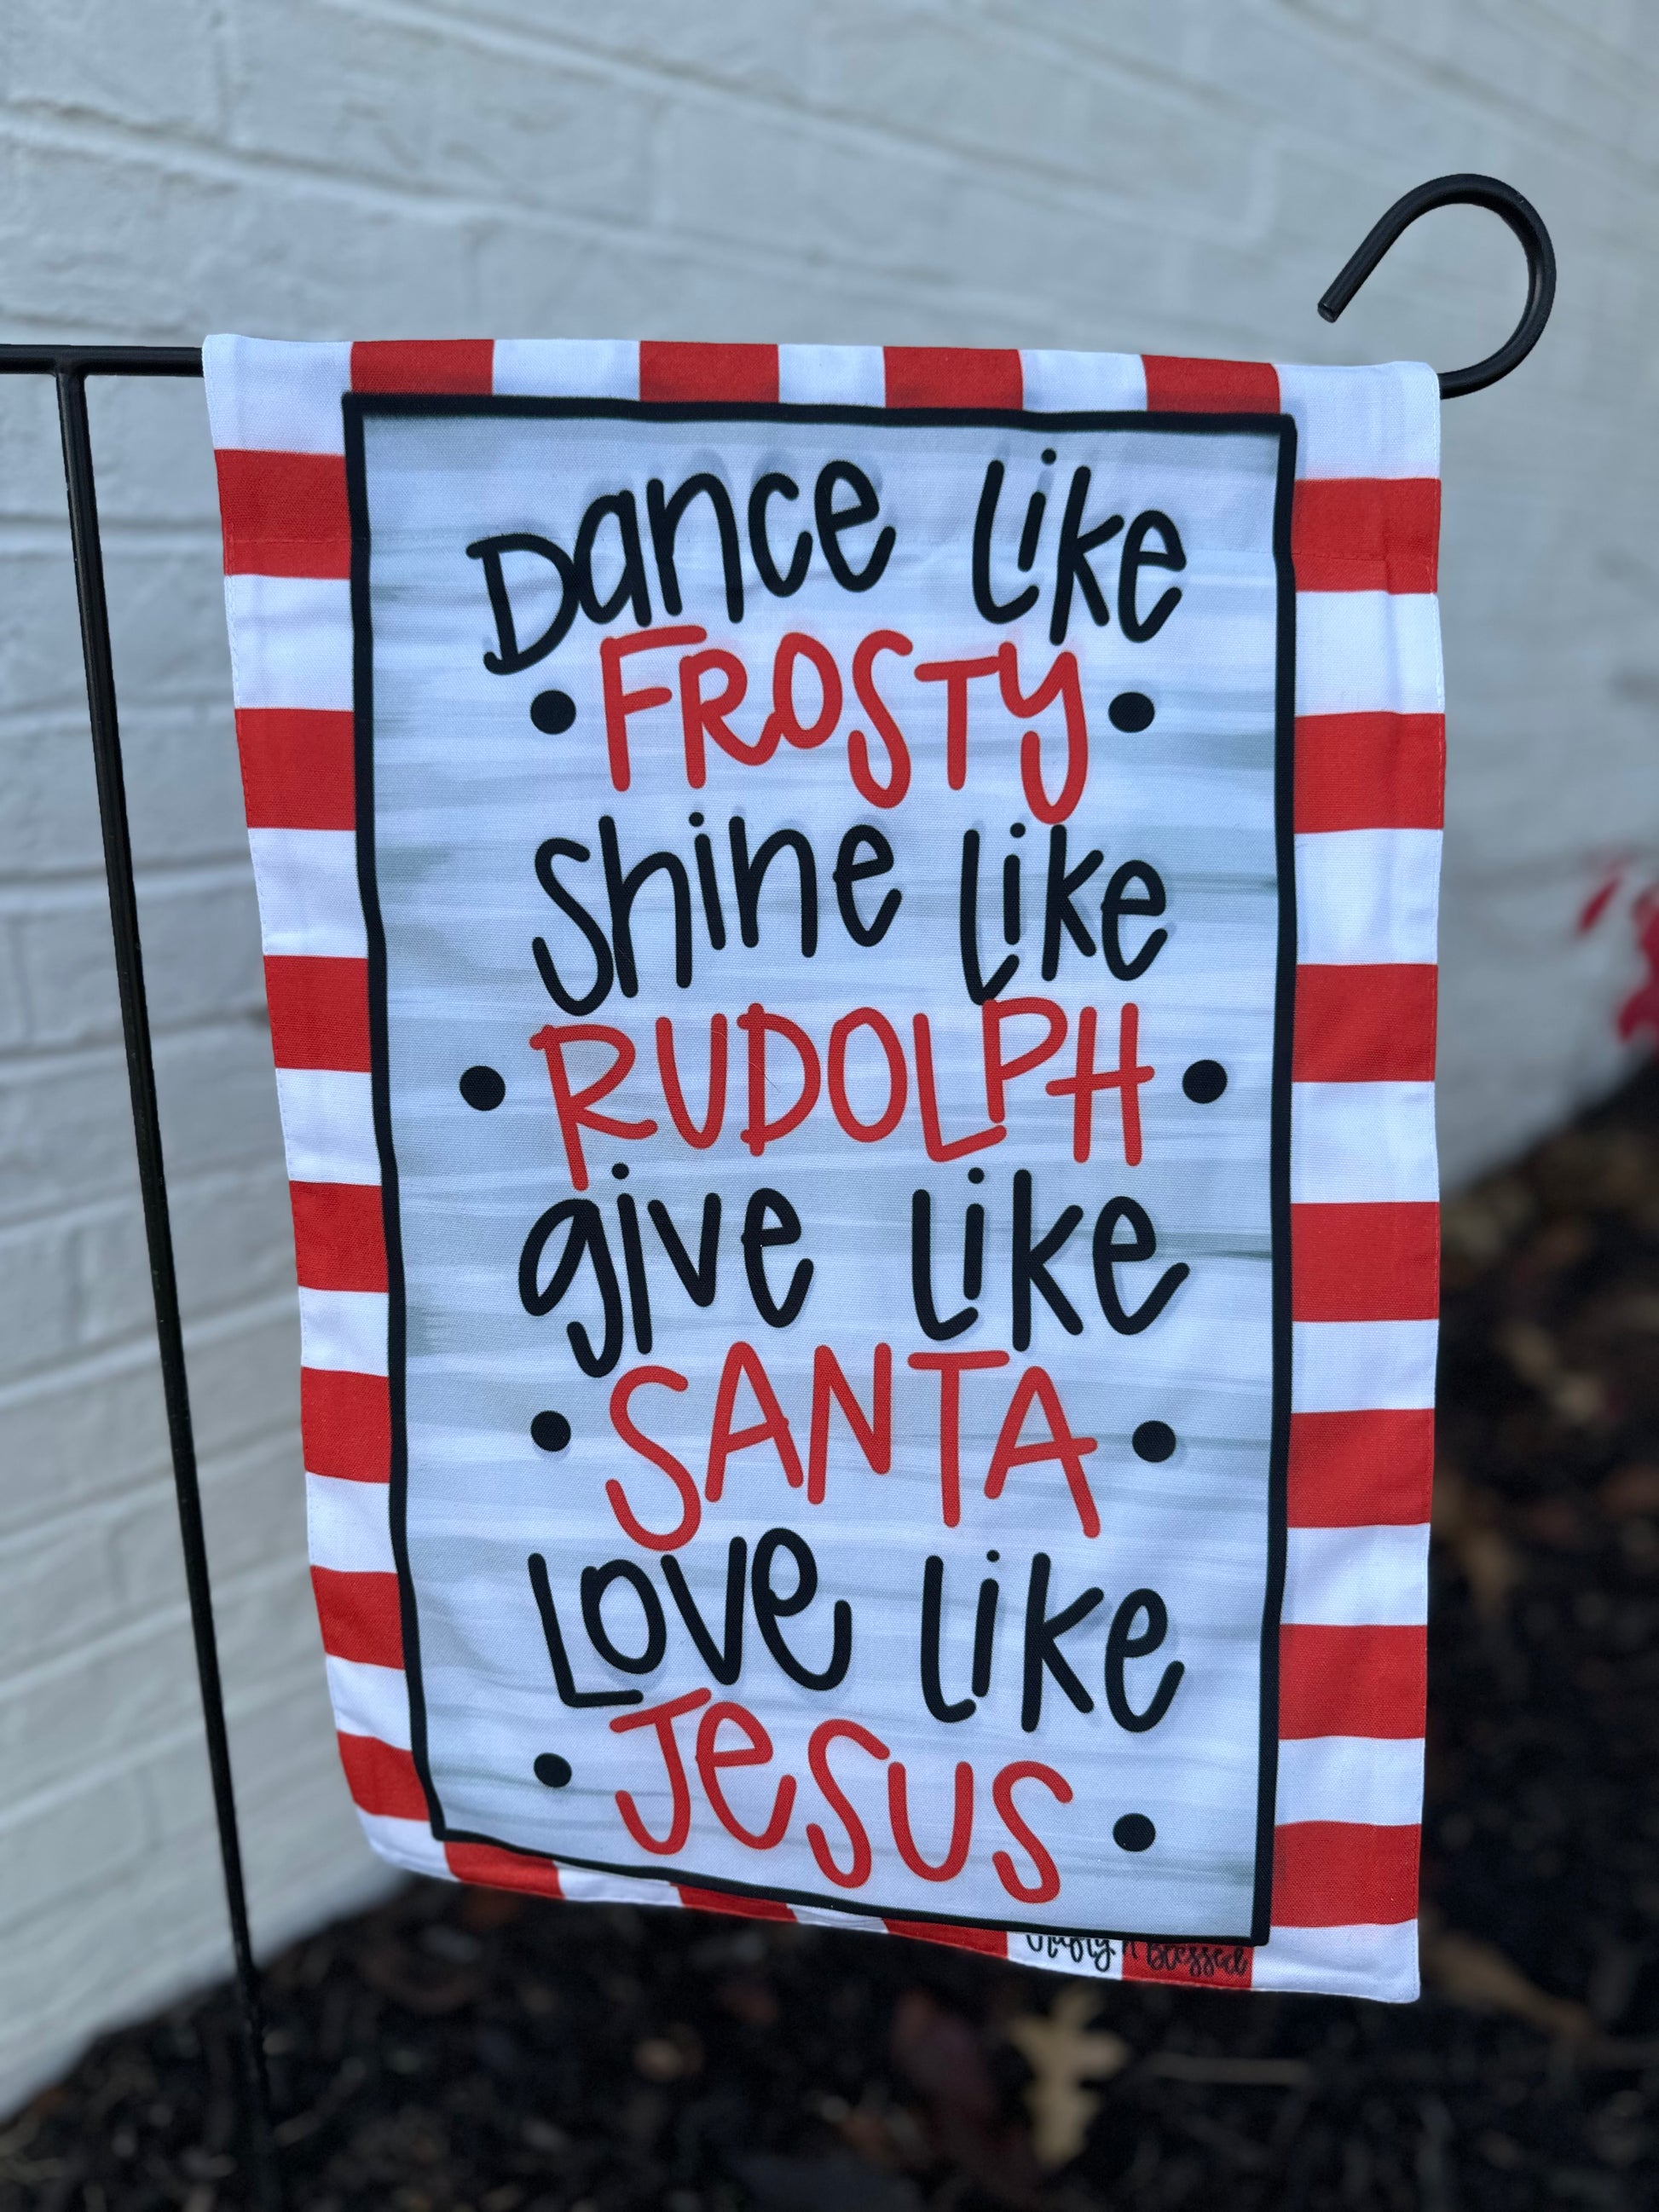 Dance like
• FROSTY •
Shine like
• RUDOLPH •
give like
• SANTA •
Love like
• Jesus •
Blessed